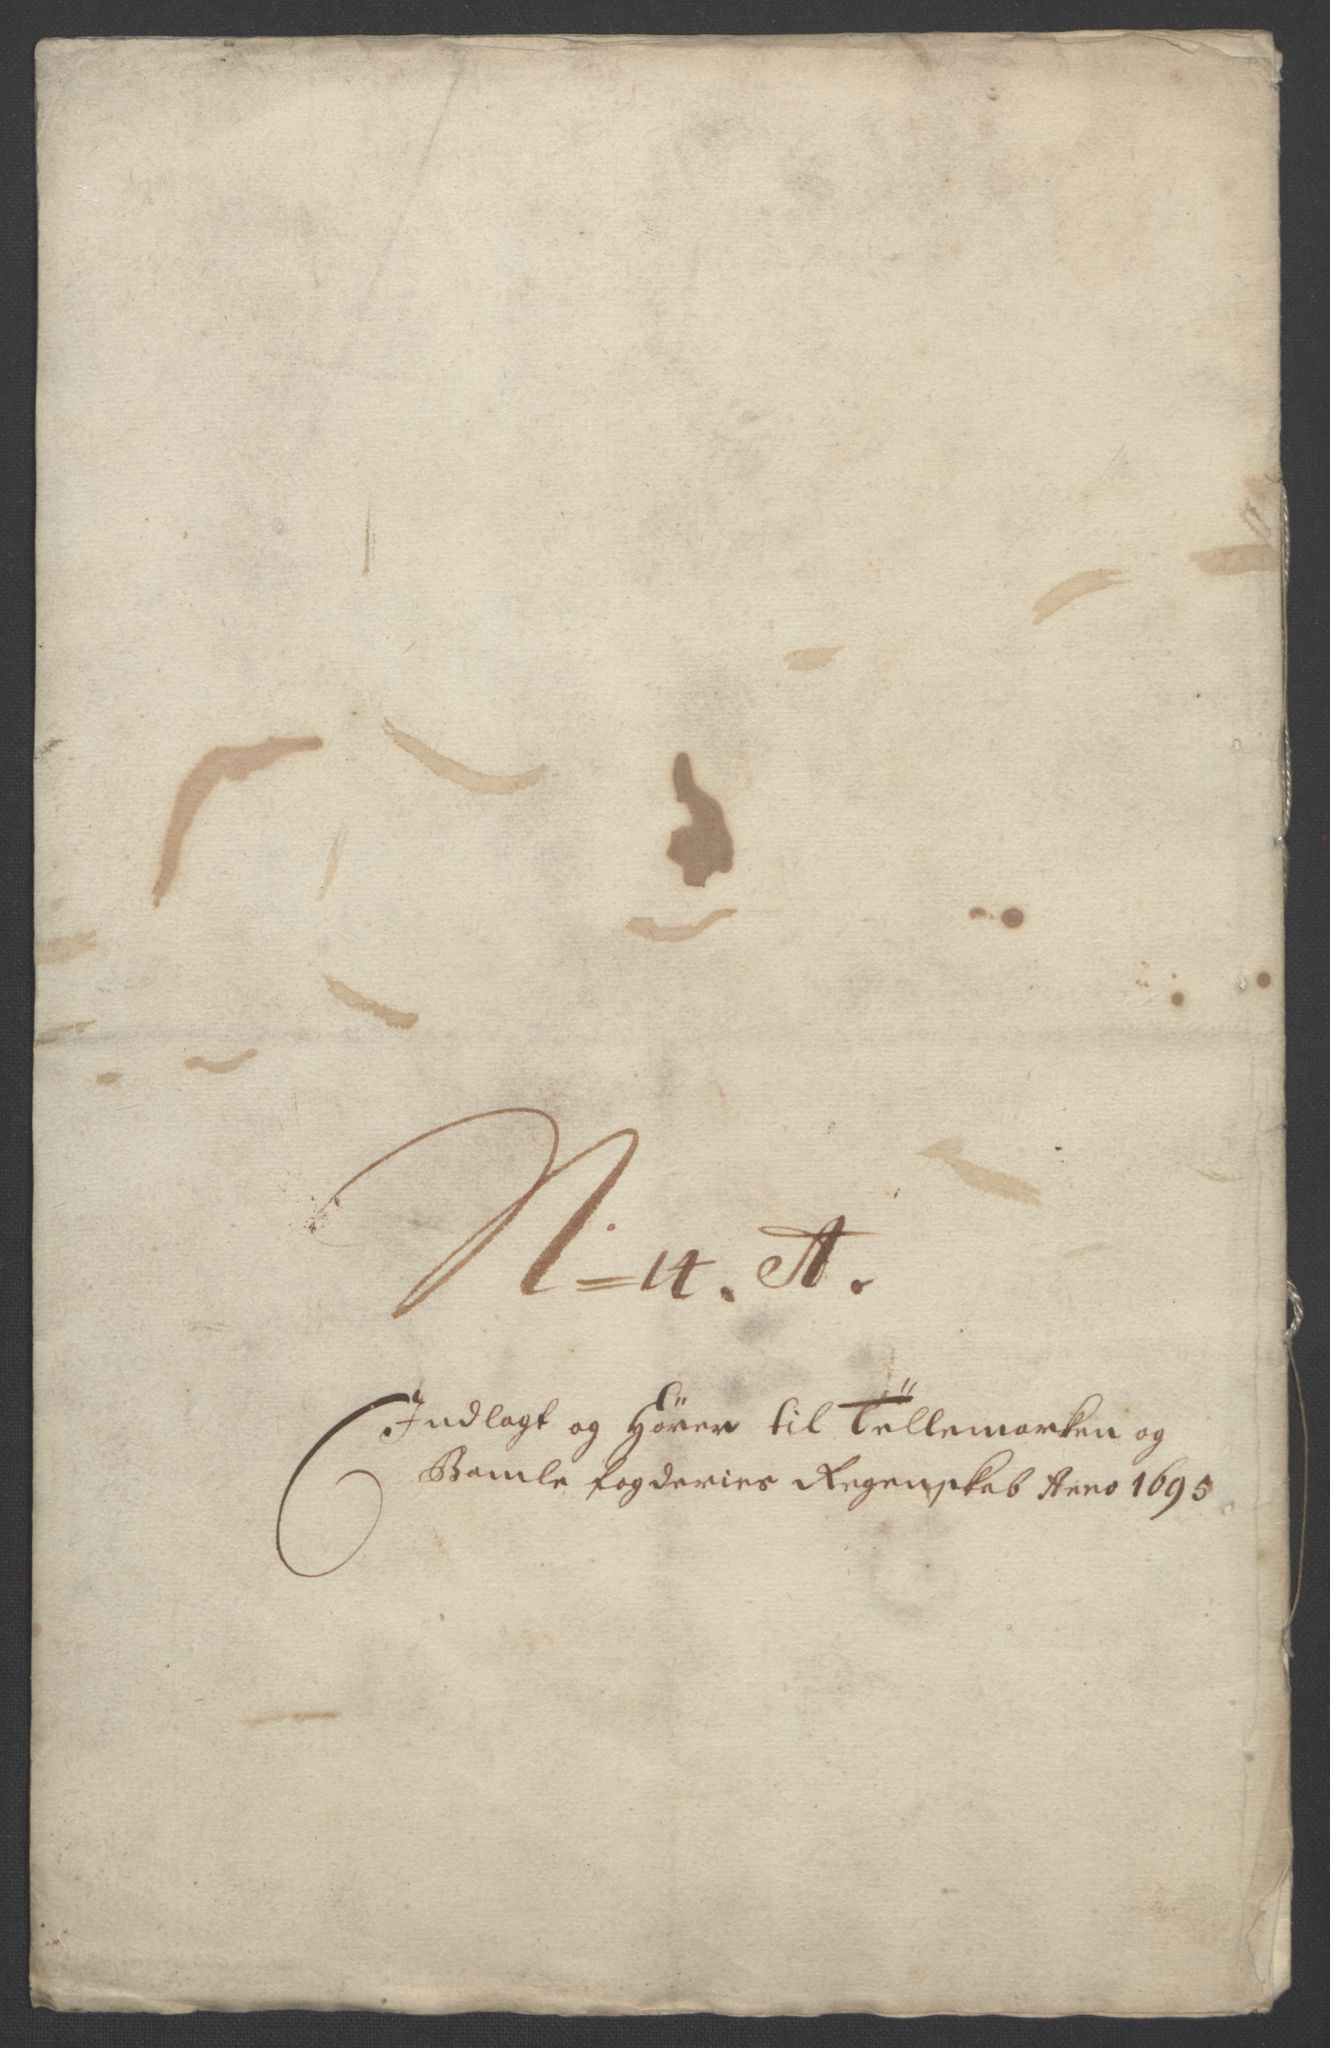 N=14. A.
Indlagt og Hörer til Tellemarken og
Bamle fogderies Regenskab Anno 1695